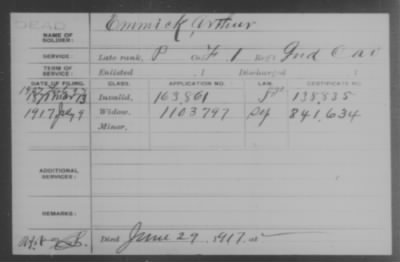 DEAD
NAME OF SOLDIER: Emmick, Arthur
SERVICE: Late rank, P Co. F, 1 Reg't Ind Cav
TERM OF SERVICE: Enlisted , 1 Discharged , 1
DATE OF FILING. CLASS. APPLICATION NO. LAW. CERTIFICATE NO.
Invalid, 163,861 138,835
1917 July 9 Widow, 1103,797 841,634
Minor,
ADDITIONAL SERVICES:
REMARKS:
Died June 29, 1917, at